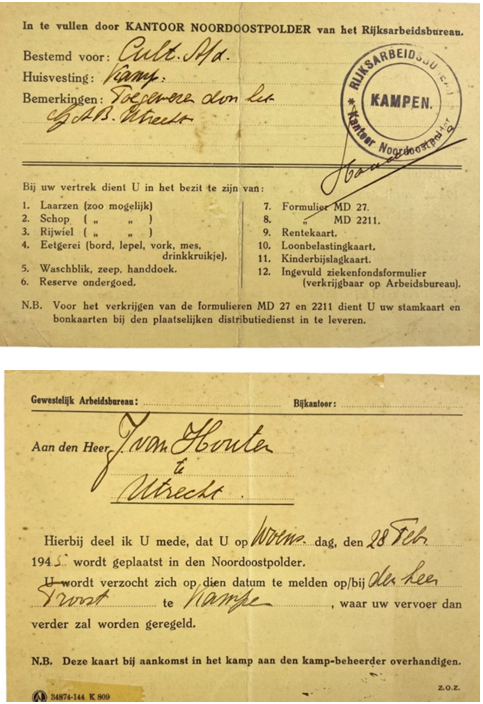 In te vullen door KANTOOR NOORDOOSTPOLDER van het Rijksarbeidsbureau.
Bestemd voor: Cult. Afd.
Huisvesting: Kamp.
Bemerkingen: Toegewezen door het
G.A.B. Utrecht
RIJKSARBEIDSBUREAU
KAMPEN.
* Kantoor Noordoostpolder
Bij uw vertrek dient U in het bezit te zijn van:
1. Laarzen (zoo mogelijk)
2. Schop ( „ „ )
3. Rijwiel ( „ „ )
4. Eetgerei (bord, lepel, vork, mes,
drinkkruikje).
5. Waschblik, zeep, handdoek.
6. Reserve ondergoed.
7. Formulier MD 27.
8. „ MD 2211.
9. Rentekaart.
10. Loonbelastingkaart.
11. Kinderbijslagkaart.
12. Ingevuld ziekenfondsformulier
(verkrijgbaar op Arbeidsbureau).
N.B. Voor het verkrijgen van de formulieren MD 27 en 2211 dient U uw stamkaart en
bonkaarten bij den plaatselijken distributiedienst in te leveren.
Gewestelijk Arbeidsbureau: Bijkantoor:
Aan den Heer J van Houten
te
Utrecht.
Hierbij deel ik U mede, dat U op Woensdag, den 28 Febr.
1945 wordt geplaatst in den Noordoostpolder.
U wordt verzocht zich op dien datum te melden op/bij den heer
Troost te Kampen, waar uw vervoer dan
verder zal worden geregeld.
N.B. Deze kaart bij aankomst in het kamp aan den kamp-beheerder overhandigen.
z.o.z.
34874-144 K 809